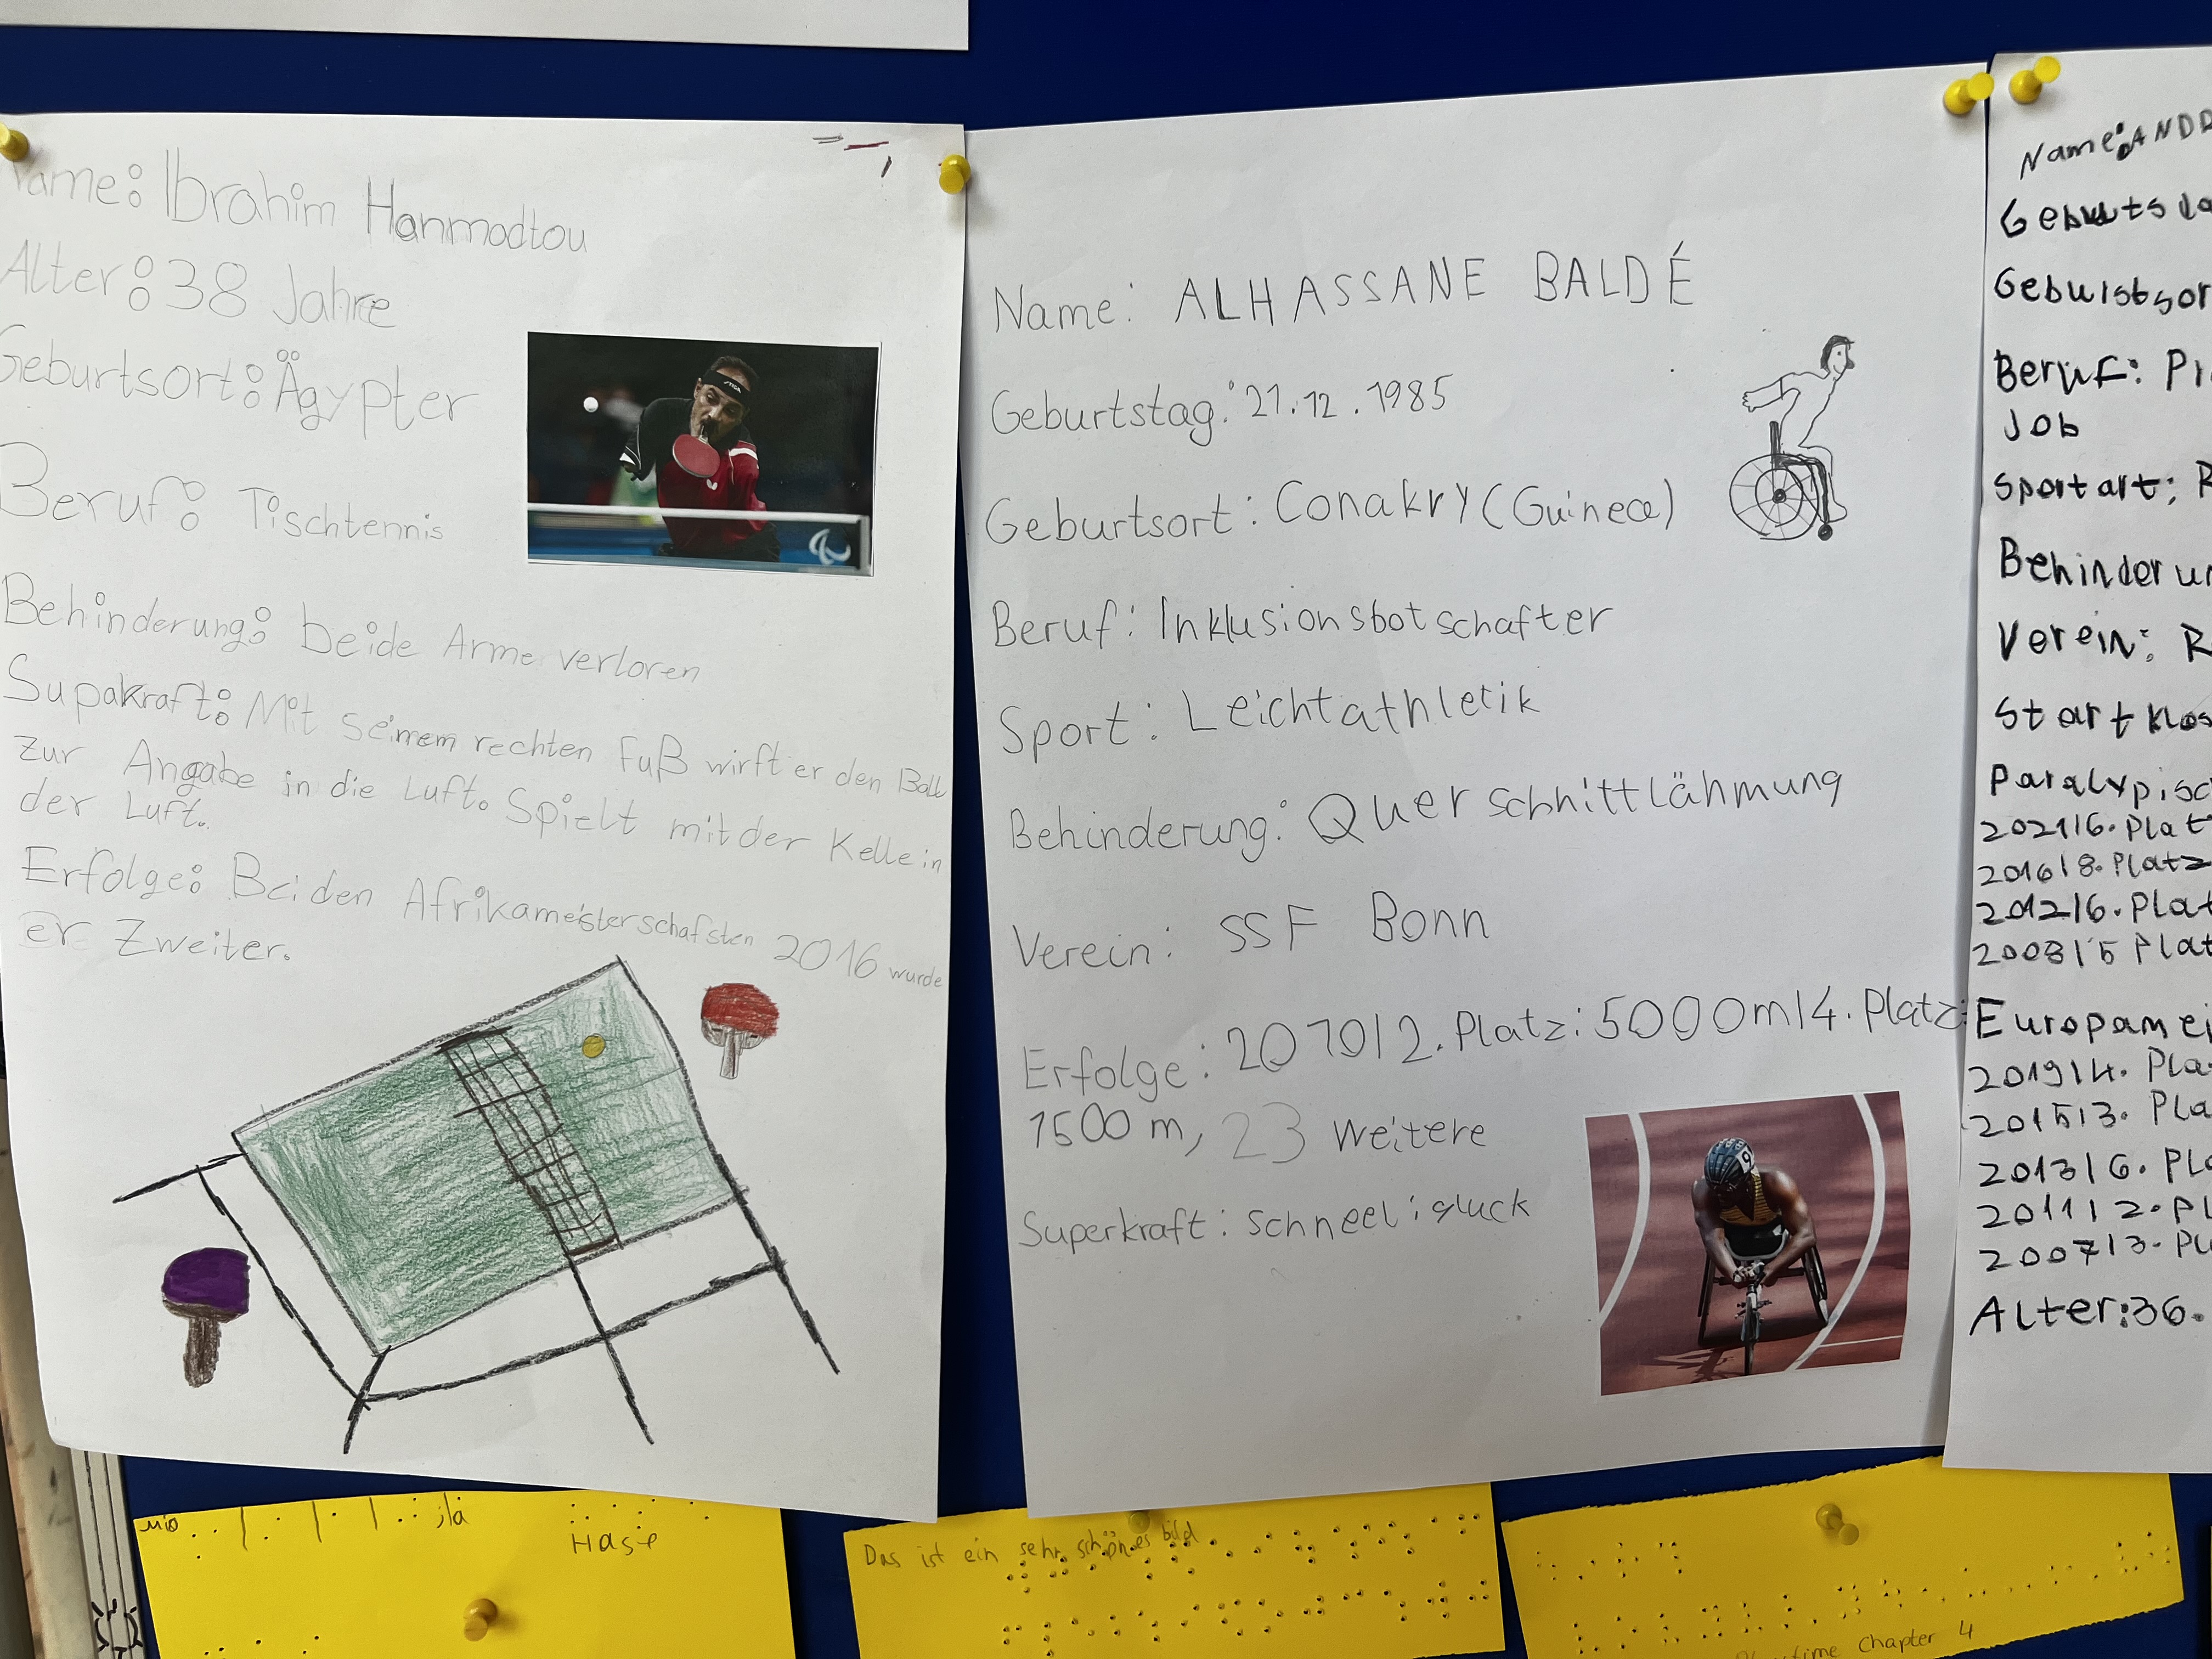 Name: Ibrahim Hanmodtou
Alter: 38 Jahre
Geburtsort: Ägypter
Beruf: Tischtennis
Behinderung: beide Arme verloren
Supakraft: Mit seinem rechten Fuß wirft er den Ball
zur Angabe in die Luft. Spielt mit der Kelle in
der Luft.
Erfolge: Bei den Afrikameisterschafsten 2016 wurde
er Zweiter.
Name: ALHASSANE BALDÉ
Geburtstag: 21.12.1985
Geburtsort: Conakry (Guinea)
Beruf: Inklusionsbotschafter
Sport: Leichtathletik
Behinderung: Querschnittlähmung
Verein: SSF Bonn
Erfolge: 2010|2. Platz: 5000m|4. Platz:
1500 m, 23 Weitere
Superkraft: Schneel igluck
9
Name: ANDR
Geburtsta
Geburstsor
Beruf: Pr
Job
Sportart: R
Behinderun
Verein: R
Startklas
Paralypisc
2021|6. Plat
2016|8. Platz
2012|6. Plat
2008|5 Plat
Europamei
2019|4. Pla
2015|3. Pla
2013|6. Pla
2011|2. Pl
2007|3. Pl
Alter: 36.
Mio
jla
Hase
Das ist ein sehr schönes bild
Playtime Chapter 4